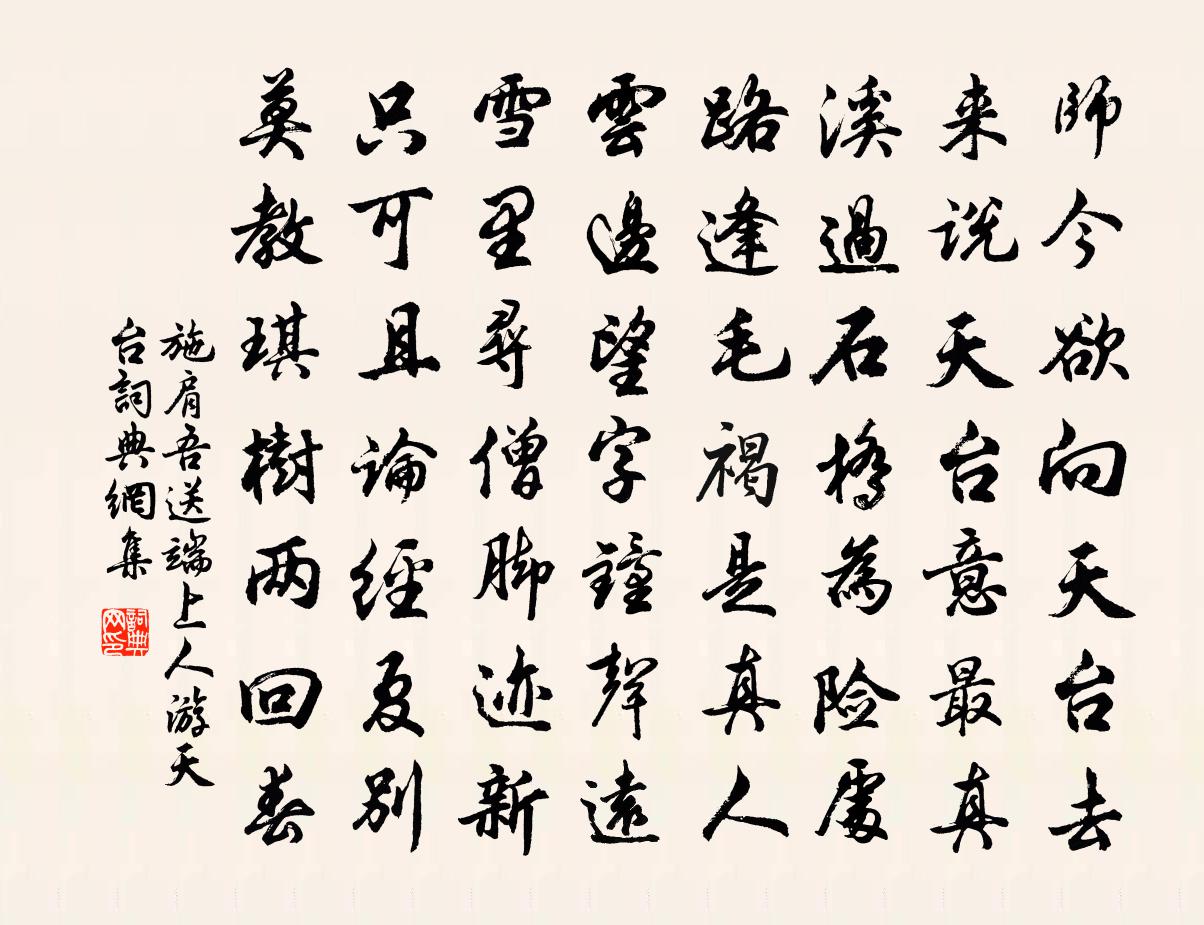 師今欲向天台去
来说天台意最真
溪過石橋為险處
路逢毛褐是真人
雲邊望字鐘聲遠
雪里尋僧脚迹新
只可且論經夏別
莫教琪樹两回春
施肩吾送端上人游天
台詞典網集
詞典网印